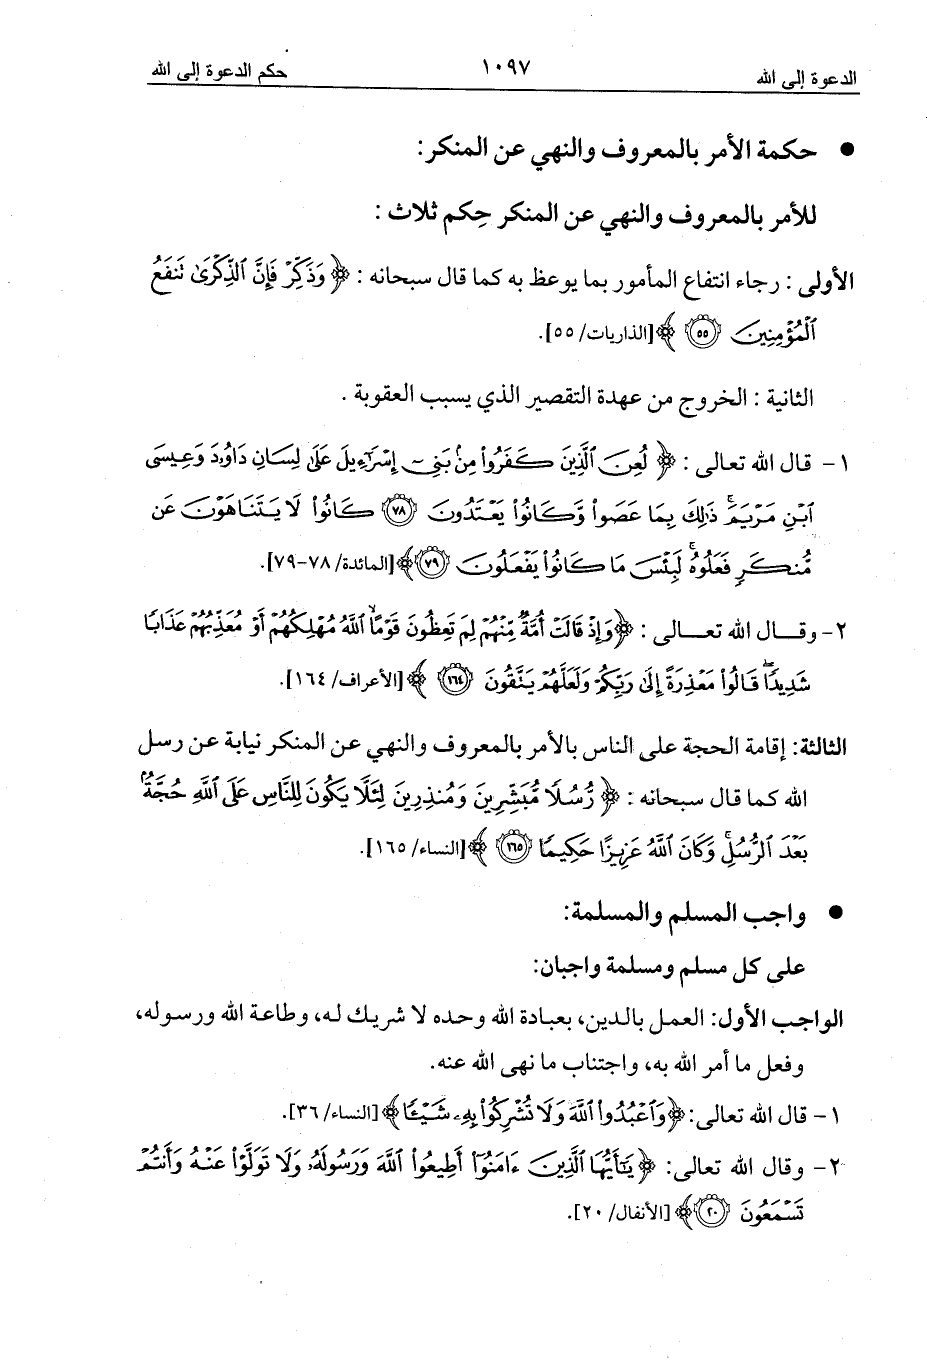 الدعوة إلى الله ١٠٩٧ حكم الدعوة إلى الله
● حكمة الأمر بالمعروف والنهي عن المنكر:
للأمر بالمعروف والنهي عن المنكر حِكم ثلاث :
الأولى : رجاء انتفاع المأمور بما يوعظ به كما قال سبحانه : ﴿ وَذَكِّرْ فَإِنَّ ٱلذِّكْرَىٰ تَنفَعُ
ٱلْمُؤْمِنِينَ ٥٥ ﴾ [الذاريات/ ٥٥].
الثانية : الخروج من عهدة التقصير الذي يسبب العقوبة .
١- قال الله تعالى : ﴿ لُعِنَ ٱلَّذِينَ كَفَرُوا۟ مِنۢ بَنِىٓ إِسْرَٰٓءِيلَ عَلَىٰ لِسَانِ دَاوُۥدَ وَعِيسَى
ٱبْنِ مَرْيَمَ ۚ ذَٰلِكَ بِمَا عَصَوا۟ وَّكَانُوا۟ يَعْتَدُونَ ٧٨ كَانُوا۟ لَا يَتَنَاهَوْنَ عَن
مُّنكَرٍ فَعَلُوهُ ۚ لَبِئْسَ مَا كَانُوا۟ يَفْعَلُونَ ٧٩ ﴾ [المائدة/ ٧٨-٧٩].
٢- وقـــال الله تعـــالى : ﴿ وَإِذْ قَالَتْ أُمَّةٌ مِّنْهُمْ لِمَ تَعِظُونَ قَوْمًا ۙ ٱللَّهُ مُهْلِكُهُمْ أَوْ مُعَذِّبُهُمْ عَذَابًا
شَدِيدًا ۖ قَالُوا۟ مَعْذِرَةً إِلَىٰ رَبِّكُمْ وَلَعَلَّهُمْ يَتَّقُونَ ١٦٤ ﴾ [الأعراف/ ١٦٤].
الثالثة: إقامة الحجة على الناس بالأمر بالمعروف والنهي عن المنكر نيابة عن رسل
الله كما قال سبحانه : ﴿ رُّسُلًا مُّبَشِّرِينَ وَمُنذِرِينَ لِئَلَّا يَكُونَ لِلنَّاسِ عَلَى ٱللَّهِ حُجَّةٌۢ
بَعْدَ ٱلرُّسُلِ ۚ وَكَانَ ٱللَّهُ عَزِيزًا حَكِيمًا ١٦٥ ﴾ [النساء/ ١٦٥].
● واجب المسلم والمسلمة:
على كل مسلم ومسلمة واجبان:
الواجب الأول: العمل بالدين، بعبادة الله وحده لا شريك له، وطاعة الله ورسوله،
وفعل ما أمر الله به، واجتناب ما نهى الله عنه.
١- قال الله تعالى: ﴿ وَٱعْبُدُوا۟ ٱللَّهَ وَلَا تُشْرِكُوا۟ بِهِۦ شَيْـًٔا ﴾ [النساء/ ٣٦].
٢- وقال الله تعالى: ﴿ يَٰٓأَيُّهَا ٱلَّذِينَ ءَامَنُوٓا۟ أَطِيعُوا۟ ٱللَّهَ وَرَسُولَهُۥ وَلَا تَوَلَّوْا۟ عَنْهُ وَأَنتُمْ
تَسْمَعُونَ ٢٠ ﴾ [الأنفال/ ٢٠].